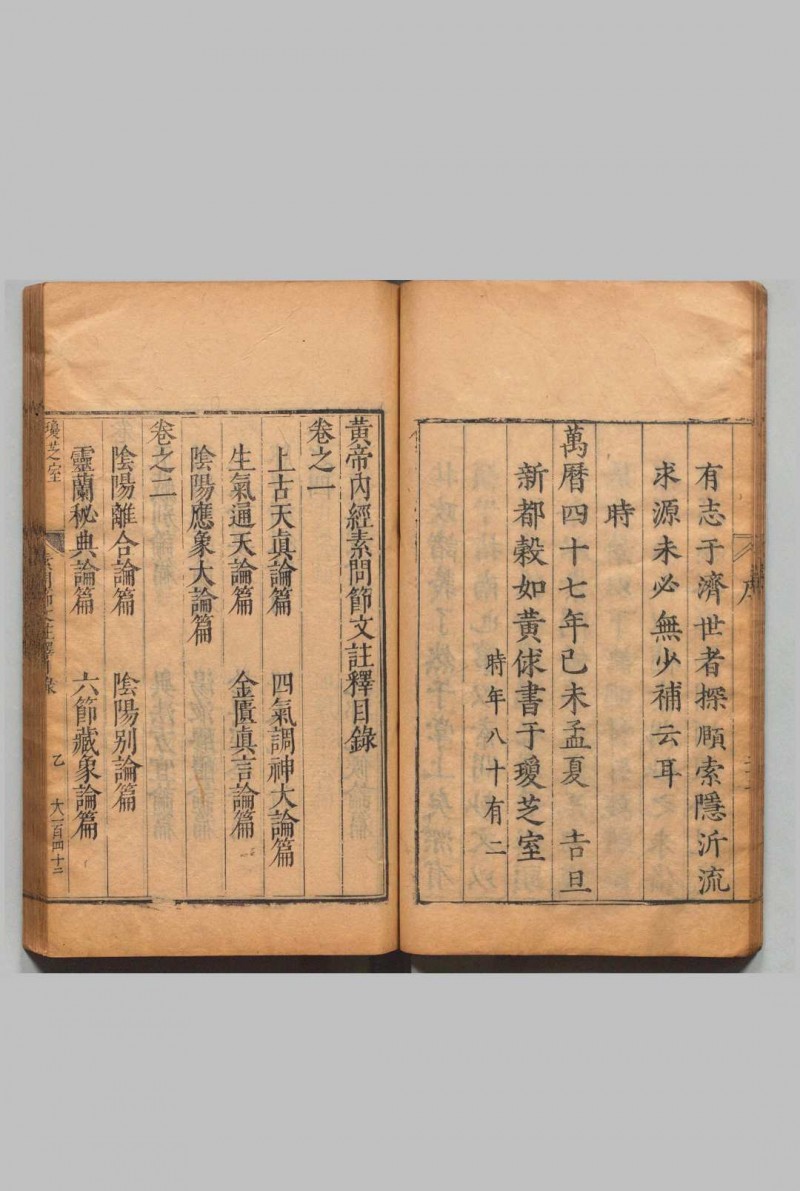 有志于濟世者探賾索隱泝流
求源未必無少補云耳
時
萬曆四十七年己未孟夏 吉旦
新都穀如黃俅書于瓊芝室
時年八十有二
黃帝內經素問節文註釋目錄
卷之一
上古天真論篇 四氣調神大論篇
生氣通天論篇 金匱真言論篇
陰陽應象大論篇
卷之二
陰陽離合論篇 陰陽別論篇
靈蘭秘典論篇 六節藏象論篇
瓊芝室
素問節文註釋目錄
乙
大二百四十二